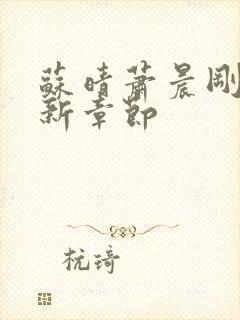 蘇晴蕭晨剛
新章節
杭琦